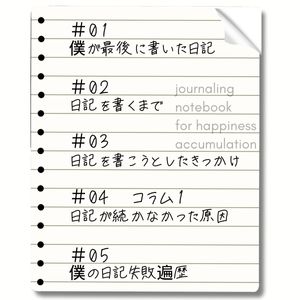 #01
僕が最後に書いた日記
#02
日記を書くまで
journaling
notebook
for happiness
accumulation
#03
日記を書こうとしたきっかけ
#04 コラム1
日記が続かなかった原因
#05
僕の日記失敗遍歴